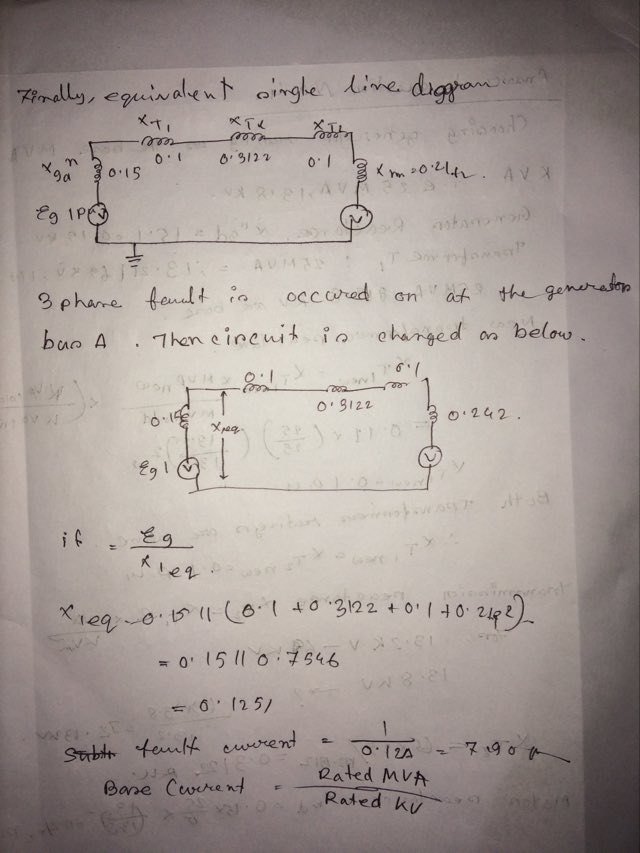 Finally, equivalent single line diggram
XT1 XTX XTL
0.1 0.3122 0.1
Xga" 0.15
Eg 1P
3 phane fault is occured on at the generator
bus A. Then circuit is changed as below.
0.1 0.3122 0.1
0.15 Xeq 0.242.
Eg 1
if = Eg
X1eq.
X1eq = 0.15 || (0.1 + 0.3122 + 0.1 + 0.242)
= 0.15 || 0.7546
= 0.125
fault current = 1
0.125 = 7.90
Base Current = Rated MVA
Rated KV